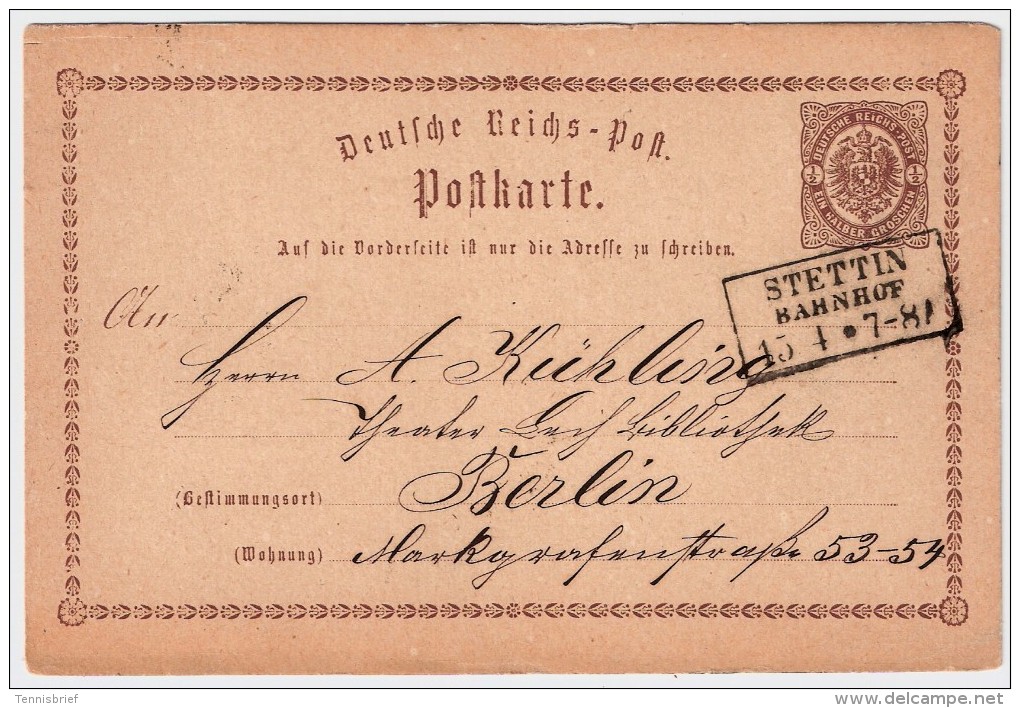 Deutsche Reichs-Post.
Postkarte.
DEUTSCHE REICHS-POST
½ ½
EIN HALBER GROSCHEN
Auf die Vorderseite ist nur die Adresse zu schreiben.
STETTIN
BAHNHOF
15 4 • 7-8
An
Herrn A. Kühling
Theater Leih Bibliothek
(Bestimmungsort) Berlin
(Wohnung) Markgrafenstraße 53-54
Tennisbrief
delcampe.net